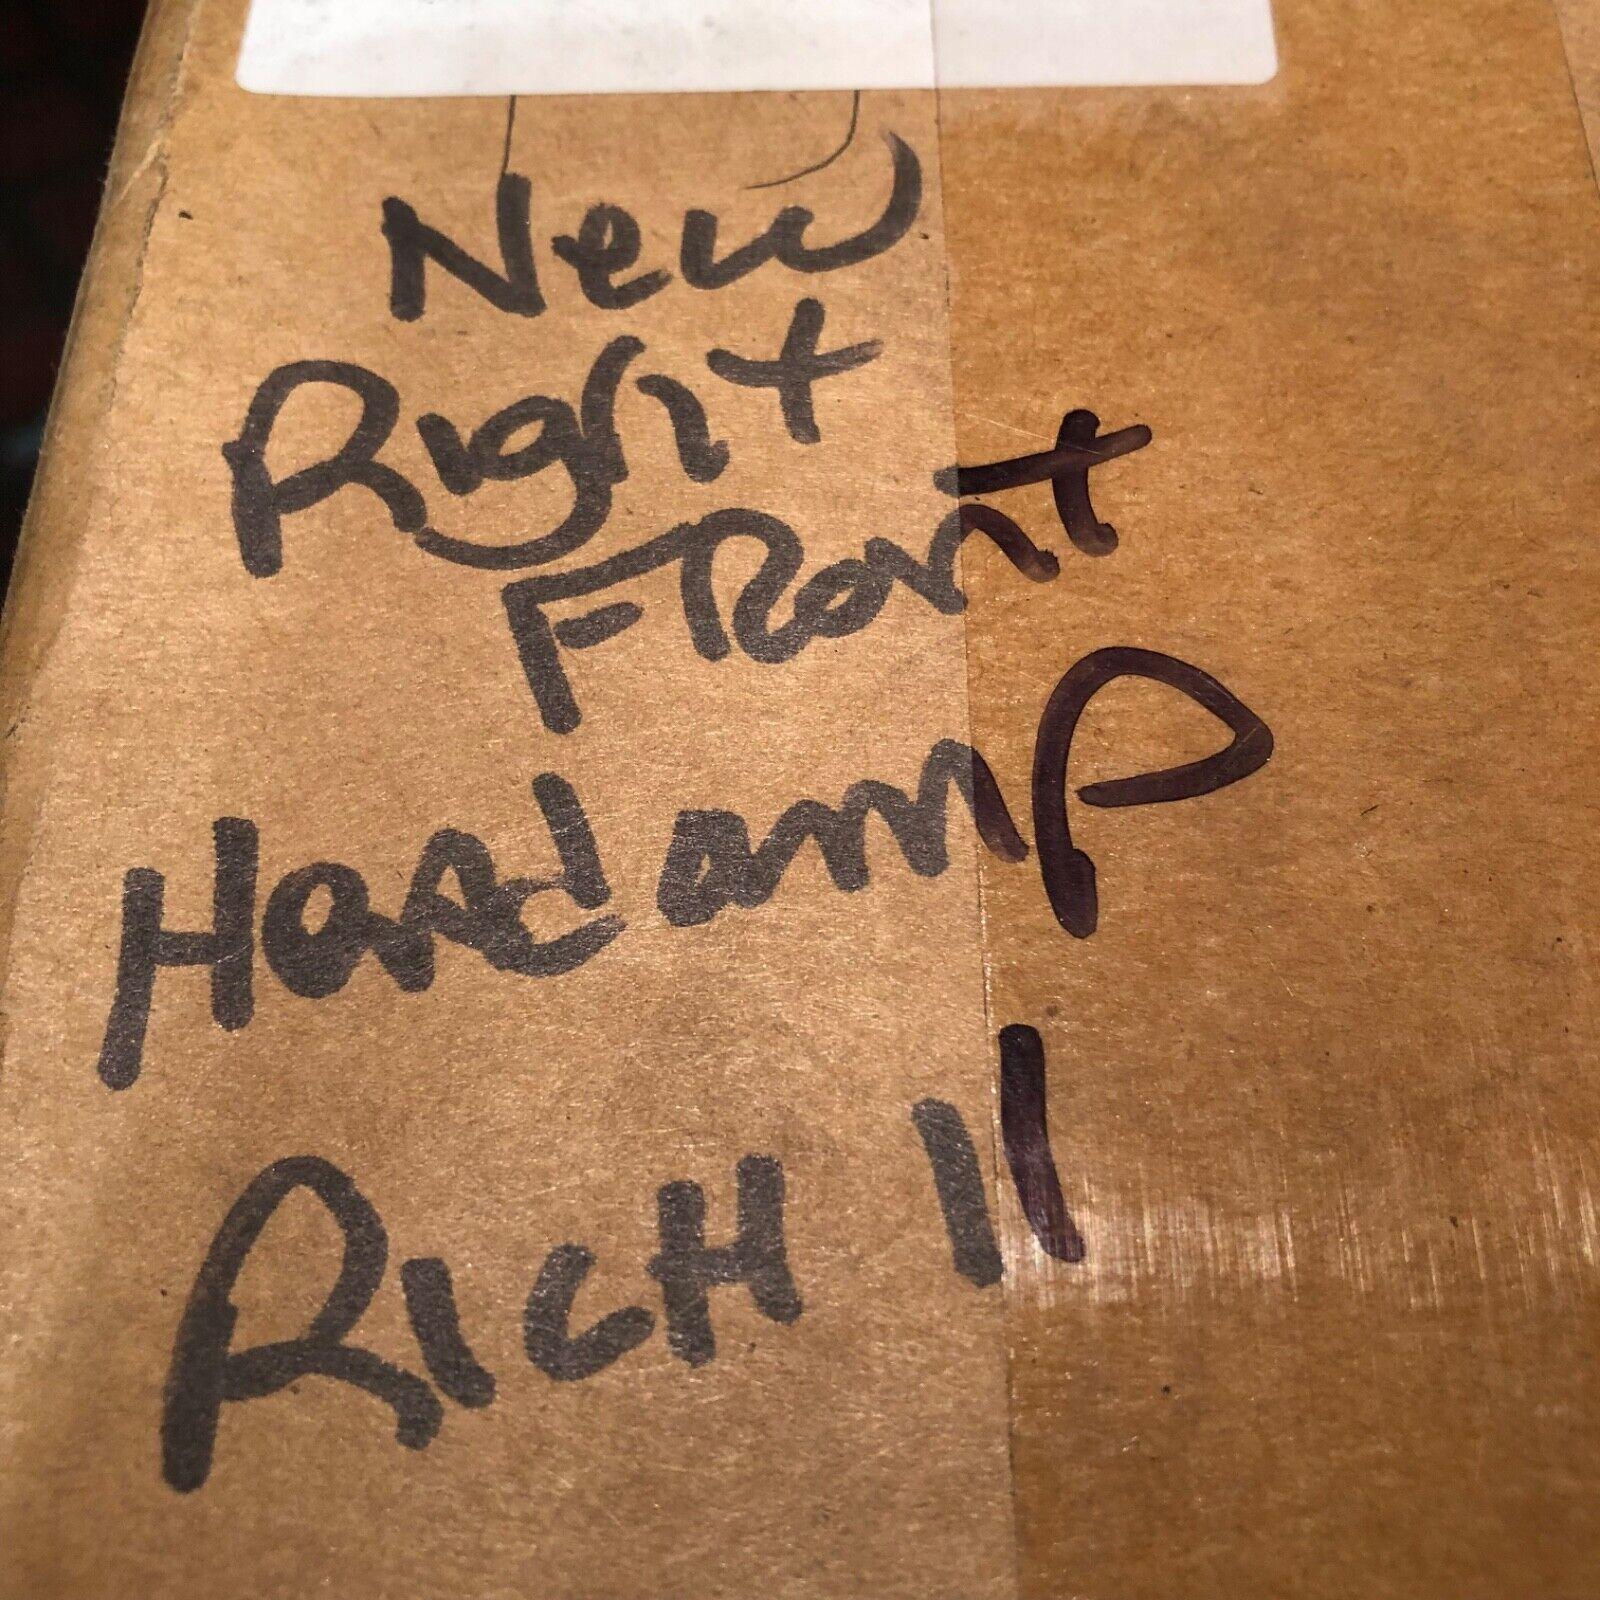 New
Right
FRont
Headlamp
RICH 11